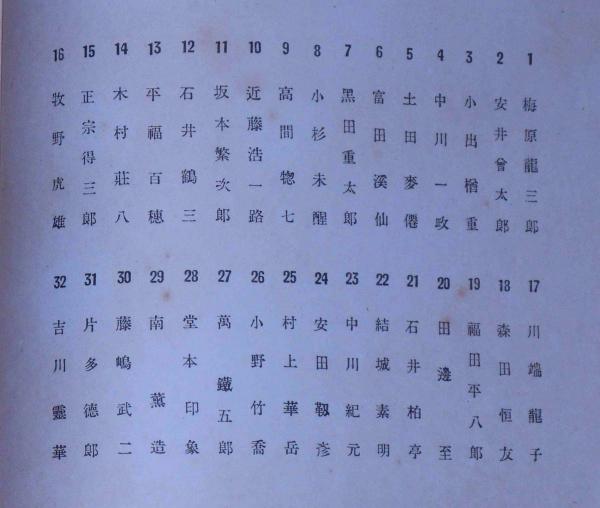 1 梅原龍三郎
2 安井曾太郎
3 小出楢重
4 中川一政
5 土田麥僊
6 富田溪仙
7 黑田重太郎
8 小杉未醒
9 高間惣七
10 近藤浩一路
11 坂本繁次郎
12 石井鶴三
13 平福百穗
14 木村莊八
15 正宗得三郎
16 牧野虎雄
17 川端龍子
18 森田恒友
19 福田平八郎
20 田邊至
21 石井柏亭
22 結城素明
23 中川紀元
24 安田靱彦
25 村上華岳
26 小野竹喬
27 萬鐵五郎
28 堂本印象
29 南薰造
30 藤嶋武二
31 片多德郎
32 吉川靈華